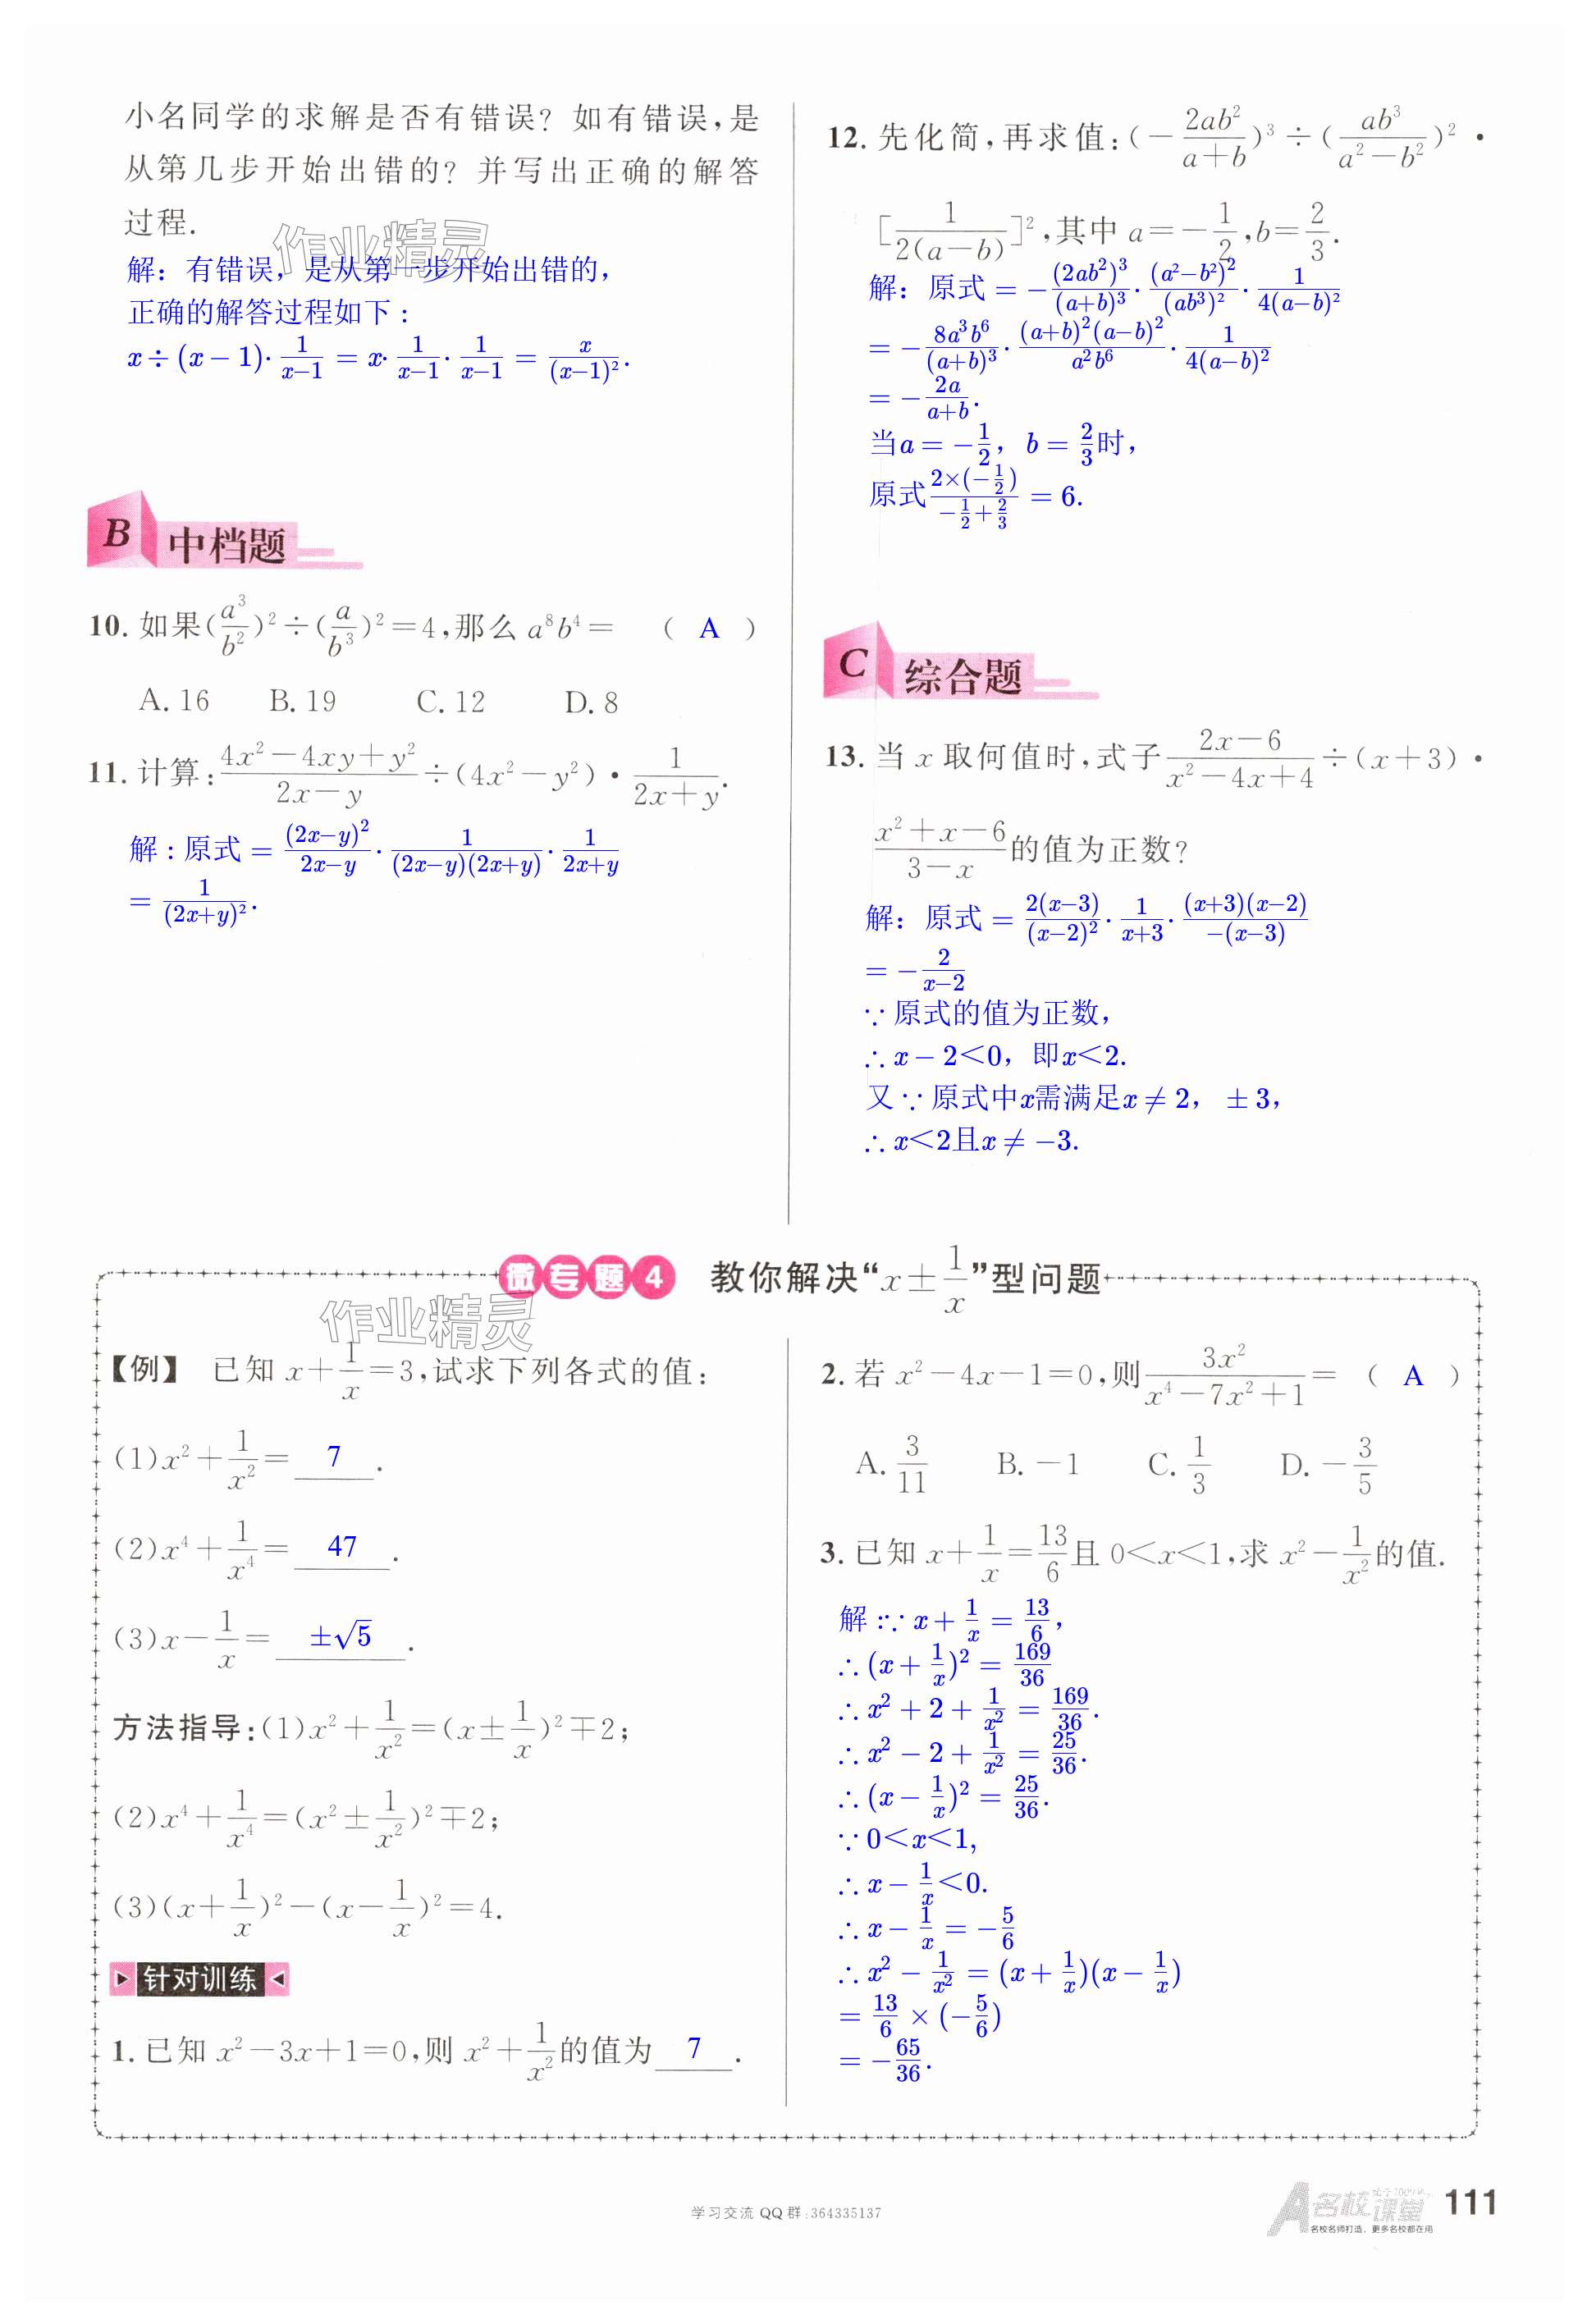 小名同学的求解是否有错误？如有错误，是
从第几步开始出错的？并写出正确的解答
过程.
作业精灵
解：有错误，是从第一步开始出错的，
正确的解答过程如下：
x÷(x−1)·1/(x−1)=x·1/(x−1)·1/(x−1)=x/(x−1)².
B 中档题
10. 如果(a³/b²)²÷(a/b³)²=4,那么 a⁸b⁴= （ A ）
A. 16 B. 19 C. 12 D. 8
11. 计算:(4x²−4xy+y²)/(2x−y)÷(4x²−y²)·1/(2x+y).
解：原式=(2x−y)²/(2x−y)·1/((2x−y)(2x+y))·1/(2x+y)
=1/(2x+y)².
12. 先化简,再求值:(−2ab²/(a+b))³÷(ab³/(a²−b²))²·
[1/(2(a−b))]²,其中 a=−1/2,b=2/3.
解：原式=−(2ab²)³/(a+b)³·(a²−b²)²/(ab³)²·1/(4(a−b)²)
=−8a³b⁶/(a+b)³·(a+b)²(a−b)²/(a²b⁶)·1/(4(a−b)²)
=−2a/(a+b).
当a=−1/2，b=2/3时，
原式(2×(−1/2))/(−1/2+2/3)=6.
C 综合题
13. 当 x 取何值时,式子(2x−6)/(x²−4x+4)÷(x+3)·
(x²+x−6)/(3−x)的值为正数?
解：原式=2(x−3)/(x−2)²·1/(x+3)·(x+3)(x−2)/(−(x−3))
=−2/(x−2)
∵原式的值为正数，
∴x−2<0，即x<2.
又∵原式中x需满足x≠2，±3，
∴x<2且x≠−3.
微专题4 教你解决“x±1/x”型问题
作业精灵
【例】 已知 x+1/x=3,试求下列各式的值:
(1)x²+1/x²= 7 .
(2)x⁴+1/x⁴= 47 .
(3)x−1/x= ±√5 .
方法指导:(1)x²+1/x²=(x±1/x)²∓2;
(2)x⁴+1/x⁴=(x²±1/x²)²∓2;
(3)(x+1/x)²−(x−1/x)²=4.
针对训练
1. 已知 x²−3x+1=0,则 x²+1/x²的值为 7 .
2. 若 x²−4x−1=0,则3x²/(x⁴−7x²+1)= （ A ）
A. 3/11 B. −1 C. 1/3 D. −3/5
3. 已知 x+1/x=13/6且 0<x<1,求 x²−1/x²的值.
解：∵x+1/x=13/6，
∴(x+1/x)²=169/36
∴x²+2+1/x²=169/36.
∴x²−2+1/x²=25/36.
∴(x−1/x)²=25/36.
∵0<x<1，
∴x−1/x<0.
∴x−1/x=−5/6
∴x²−1/x²=(x+1/x)(x−1/x)
=13/6×(−5/6)
=−65/36.
学习交流 QQ 群:364335137
A名校课堂
名校名师打造、更多名校都在用
111